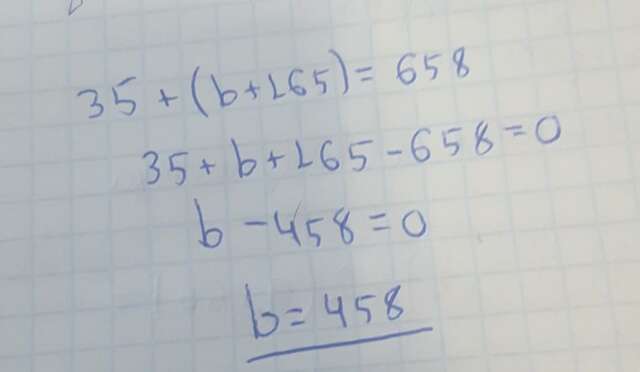 35 + (b+165) = 658
35 + b + 165 - 658 = 0
b - 458 = 0
b = 458